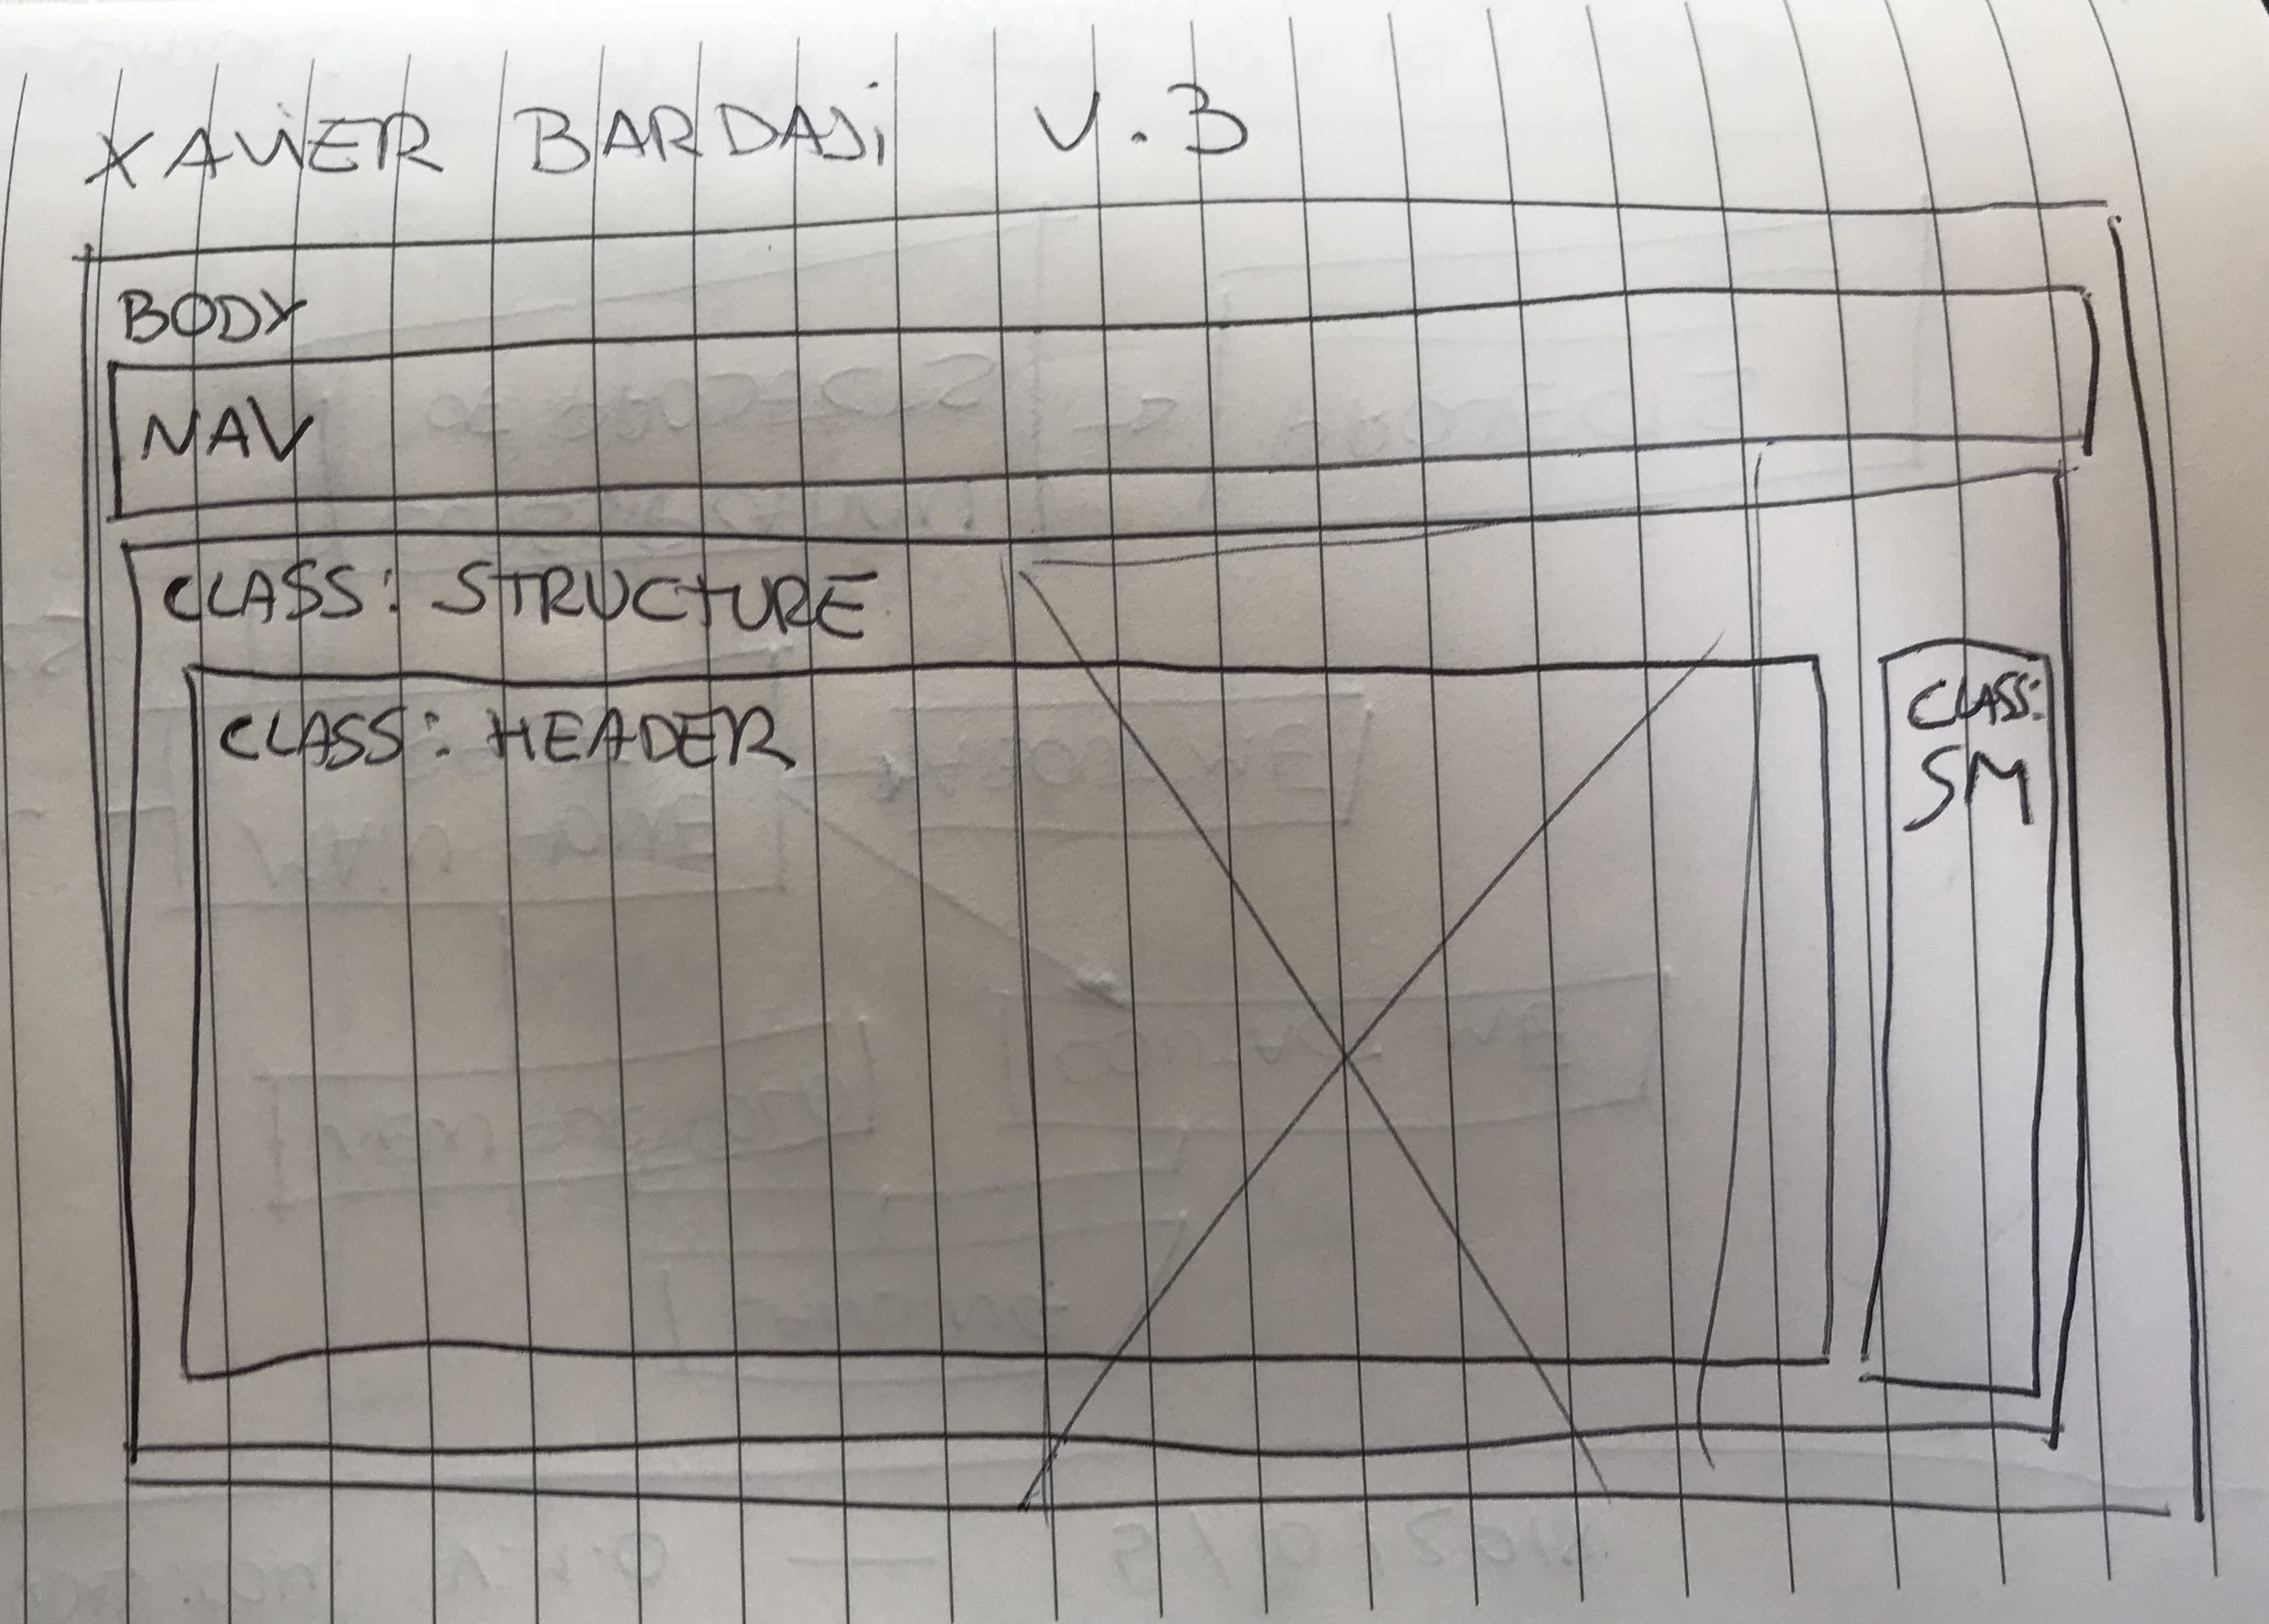 XAVIER BARDAJI V.3
BODY
NAV
CLASS: STRUCTURE
CLASS: HEADER
CLASS:
SM